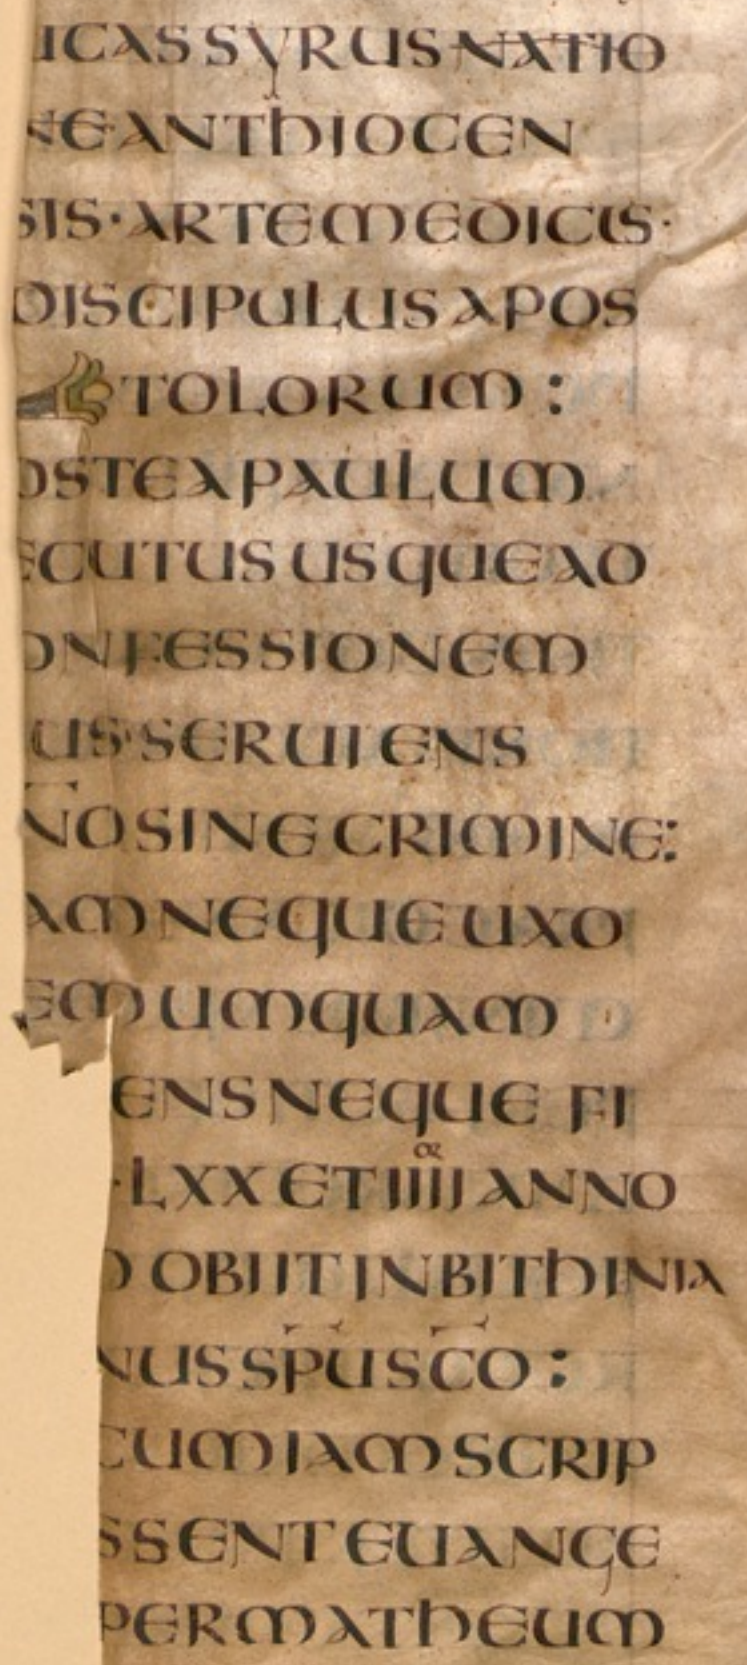 UCAS SYRUS NATIO
NE ANTHIOCEN
SIS · ARTE MEDICUS ·
DISCIPULUS APOS
TOLORUM :
OSTEA PAULUM
ECUTUS USQUE AD
ONFESSIONEM
US · SERUIENS
N̄O SINE CRIMINE :
AM NEQUE UXO
EM UMQUAM
ENS NEQUE FI
· LXX ET IIII ANNO
O OBIIT IN BITHINIA
NUS SP̄U SC̄O :
CUM IAM SCRIP
SSENT EUANGE
PER MATHEUM